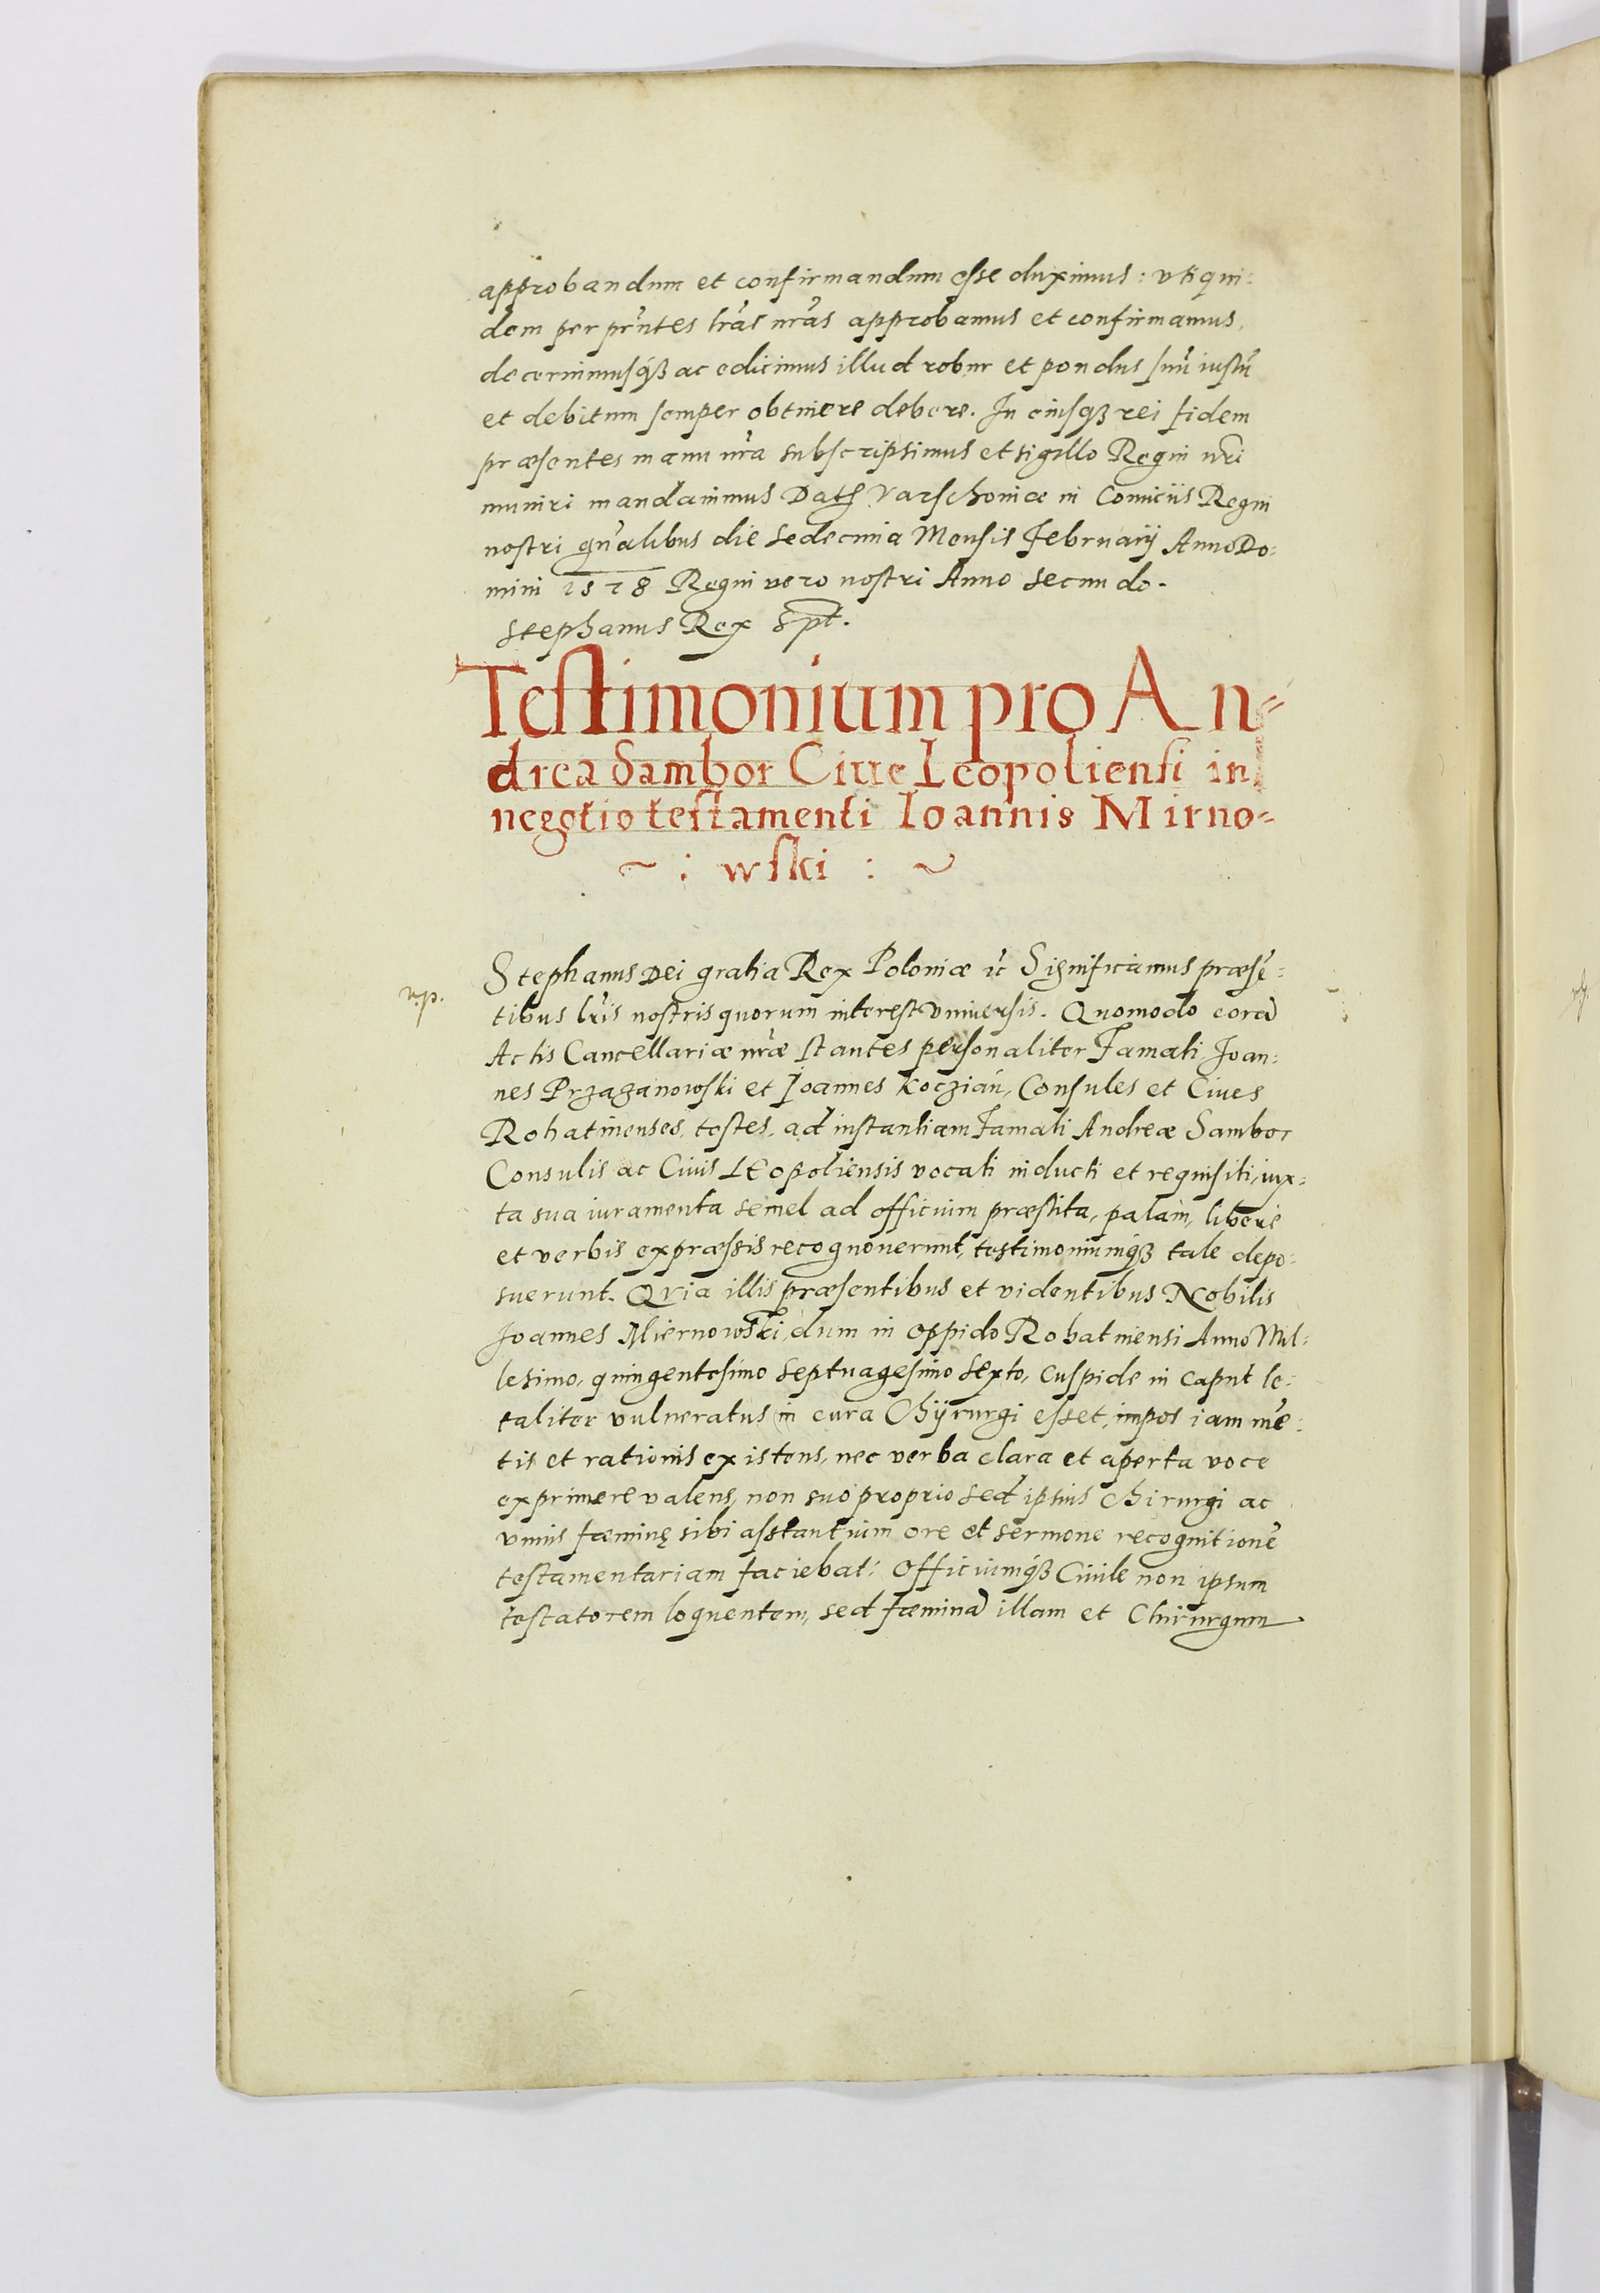 approbandum et confirmandum esse duximus: vti qui:
dem per prñtes lrãs nrãs approbamus et confirmamus,
decernimusq́ꝫ ac edicimus illud robur et pondus suũ iustũ
et debitum semper obtinere debere. In cuiusqꝫ rei fidem
præsentes manu nr̃a subscripsimus et sigillo Regni nr̃i
muniri mandauimus Datꝭ Varschoniæ in Comiciis Regni
nostri gñalibus die sedecima Mensis Februarij Anno Do:
mini 1578 Regni vero nostri Anno secundo.
Stephanus Rex spt̃.
Testimonium pro An-
drea Sambor Ciue Leopoliensi in
negotio testamenti Ioannis Mirno-
~ : wski : ~
Stephanus Dei gratia Rex Poloniæ ic̃ Significamus præsẽ:
tibus lr̃is nostris quorum interest vniuersis. Quomodo corã
Actis Cancellariæ nr̃æ stantes personaliter Famati Joan:
nes Przazanowski et Joannes Koczian, Consules et Ciues
Rohatinenses, testes, ad instantiam Famati Andreæ Sambor
Consulis ac Ciuis LEopoliensis vocati inducti et requisiti, iux:
ta sua iuramenta semel ad officium præstita, palam, libere
et verbis expræssis recognouerunt, testimoniumq́ꝫ tale depo:
suerunt. Qvia illis præsentibus et videntibus Nobilis
Joannes Miernowski, dum in oppido Rohatinensi Anno Mil:
lesimo, quingentesimo septuagesimo sexto, cuspide in caput le:
taliter vulneratus in cura Chÿrurgi esset, impos iam mẽ:
tis et rationis existens, nec verba clara et aperta voce
exprimere valens, non suo proprio sed ipsius Chirurgi ac
vnius fæminę sibi asstantium ore et sermone recognitionẽ
testamentariam faciebat: Officiumq́ꝫ Ciuile non ipsum
testatorem loquentem, sed fæminã illam et Chirurgum